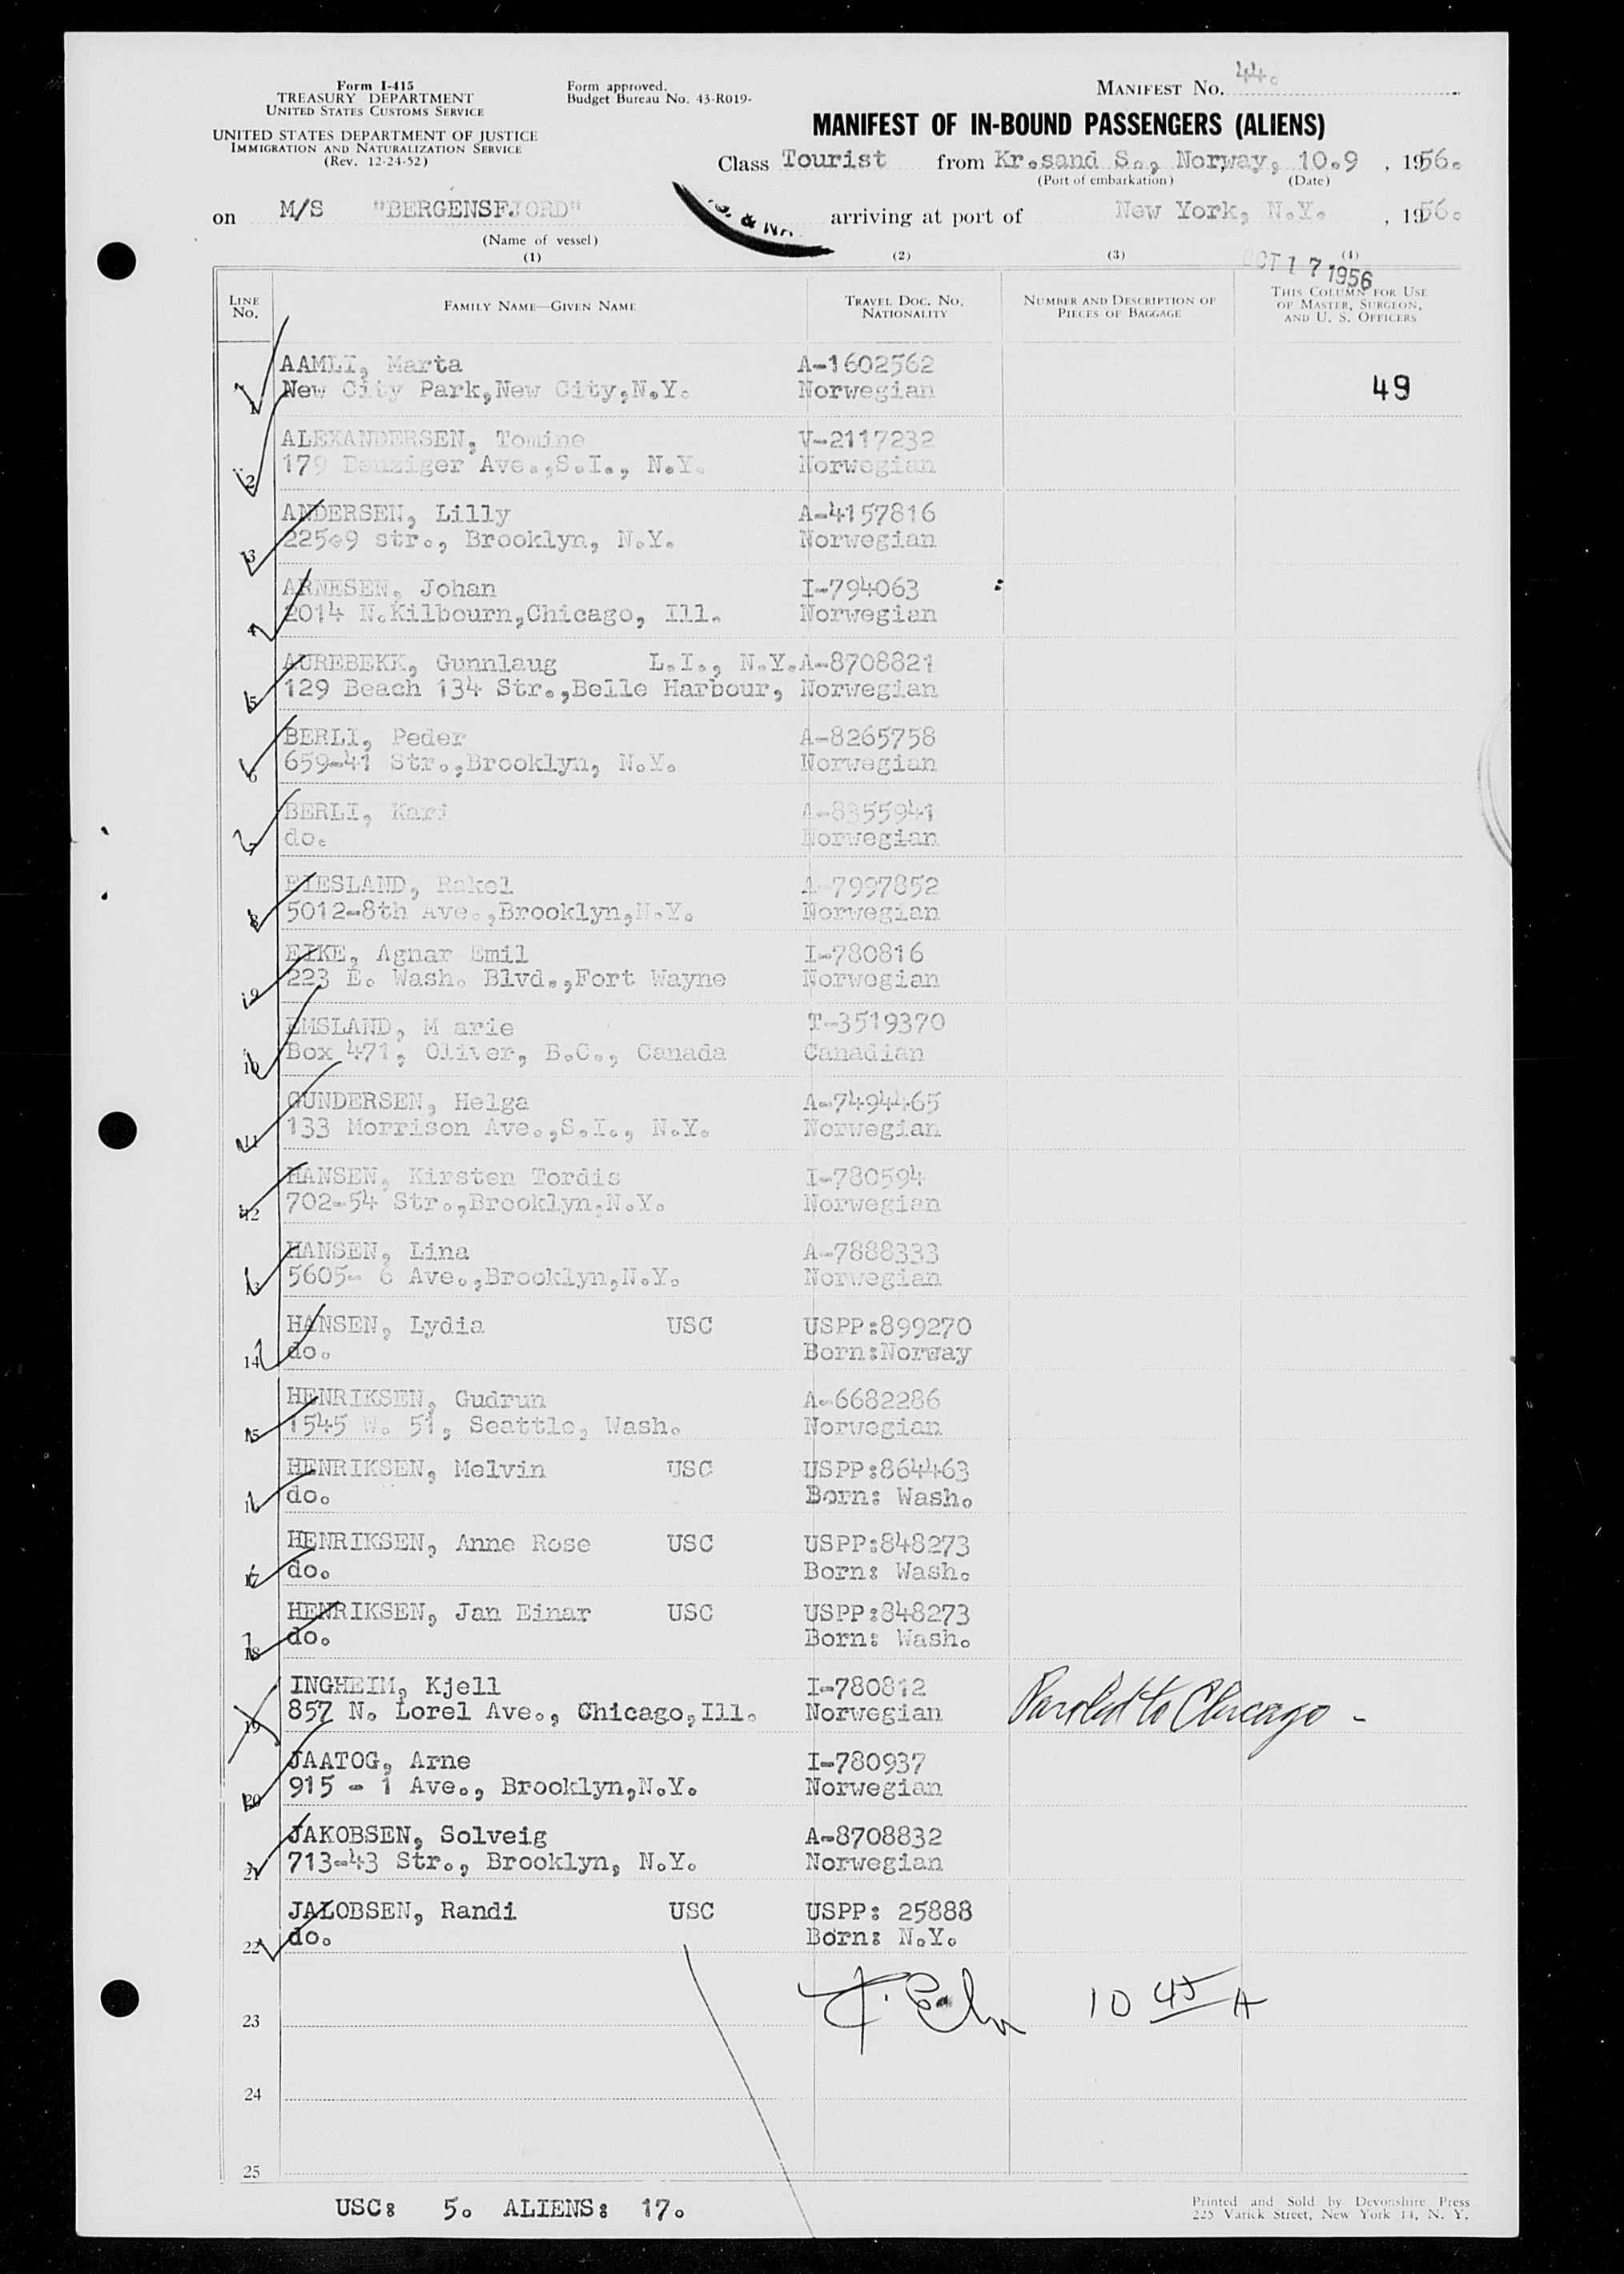 Form I-415
TREASURY DEPARTMENT
UNITED STATES CUSTOMS SERVICE
UNITED STATES DEPARTMENT OF JUSTICE
IMMIGRATION AND NATURALIZATION SERVICE
(Rev. 12-24-52)
Form approved.
Budget Bureau No. 43-R019-
MANIFEST No. 44.
MANIFEST OF IN-BOUND PASSENGERS (ALIENS)
Class Tourist from Kr.sand S., Norway, 10.9 , 1956.
(Port of embarkation) (Date)
on M/S "BERGENSFJORD" arriving at port of New York, N.Y. , 1956.
(Name of vessel)
(1) (2) (3) (4)
OCT 17 1956
LINE No. FAMILY NAME—GIVEN NAME TRAVEL DOC. No. NATIONALITY NUMBER AND DESCRIPTION OF PIECES OF BAGGAGE THIS COLUMN FOR USE OF MASTER, SURGEON, AND U. S. OFFICERS
AAMLI, Marta A-1602562
1 New City Park,New City,N.Y. Norwegian 49
ALEXANDERSEN, Tomine V-2117232
2 179 Denziger Ave.,S.I., N.Y. Norwegian
ANDERSEN, Lilly A-4157816
3 225-9 str., Brooklyn, N.Y. Norwegian
ARNESEN, Johan I-794063
4 2014 N.Kilbourn,Chicago, Ill. Norwegian
AUREBEKK, Gunnlaug L.I., N.Y. A-8708821
5 129 Beach 134 Str.,Belle Harbour, Norwegian
BERLI, Peder A-8265758
6 659-41 Str.,Brooklyn, N.Y. Norwegian
BERLI, Kari A-8355941
7 do. Norwegian
EIESLAND, Rakel A-7997852
8 5012-8th Ave.,Brooklyn,N.Y. Norwegian
EIKE, Agnar Emil I-780816
9 223 E. Wash. Blvd.,Fort Wayne Norwegian
EMSLAND, M arie T-3519370
10 Box 471, Oliver, B.C., Canada Canadian
GUNDERSEN, Helga A-7494465
11 133 Morrison Ave.,S.I., N.Y. Norwegian
HANSEN, Kirsten Tordis I-780594
12 702-54 Str.,Brooklyn,N.Y. Norwegian
HANSEN, Lina A-7888333
13 5605- 6 Ave.,Brooklyn,N.Y. Norwegian
HANSEN, Lydia USC USPP:899270
14 do. Born:Norway
HENRIKSEN, Gudrun A-6682286
15 1545 W. 51, Seattle, Wash. Norwegian
HENRIKSEN, Melvin USC USPP:864463
16 do. Born: Wash.
HENRIKSEN, Anne Rose USC USPP:848273
17 do. Born: Wash.
HENRIKSEN, Jan Einar USC USPP:848273
18 do. Born: Wash.
INGHEIM, Kjell I-780812
19 857 N. Lorel Ave., Chicago,Ill. Norwegian Paroled to Chicago -
JAATOG, Arne I-780937
20 915 - 1 Ave., Brooklyn,N.Y. Norwegian
JAKOBSEN, Solveig A-8708832
21 713-43 Str., Brooklyn, N.Y. Norwegian
JAKOBSEN, Randi USC USPP: 25888
22 do. Born: N.Y.
23 10 45 A
24
25
USC: 5. ALIENS: 17.
Printed and Sold by Devonshire Press
225 Varick Street, New York 14, N. Y.